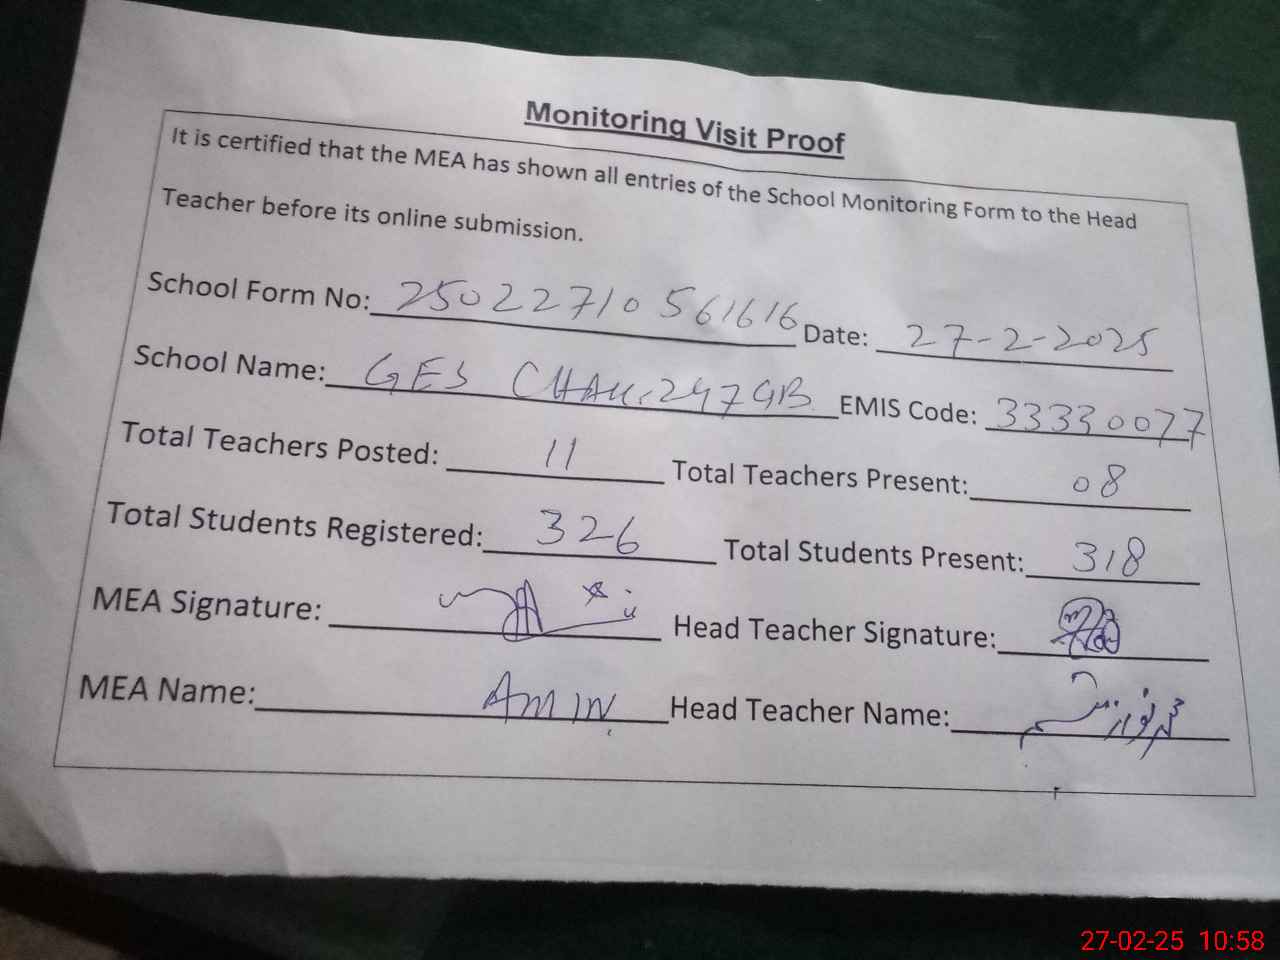 Monitoring Visit Proof
It is certified that the MEA has shown all entries of the School Monitoring Form to the Head
Teacher before its online submission.
School Form No: 25022710561616 Date: 27-2-2025
School Name: GES CHAK.247GB EMIS Code: 33330077
Total Teachers Posted: 11 Total Teachers Present: 08
Total Students Registered: 326 Total Students Present: 318
MEA Signature: Head Teacher Signature:
MEA Name: AMIN Head Teacher Name:
27-02-25 10:58